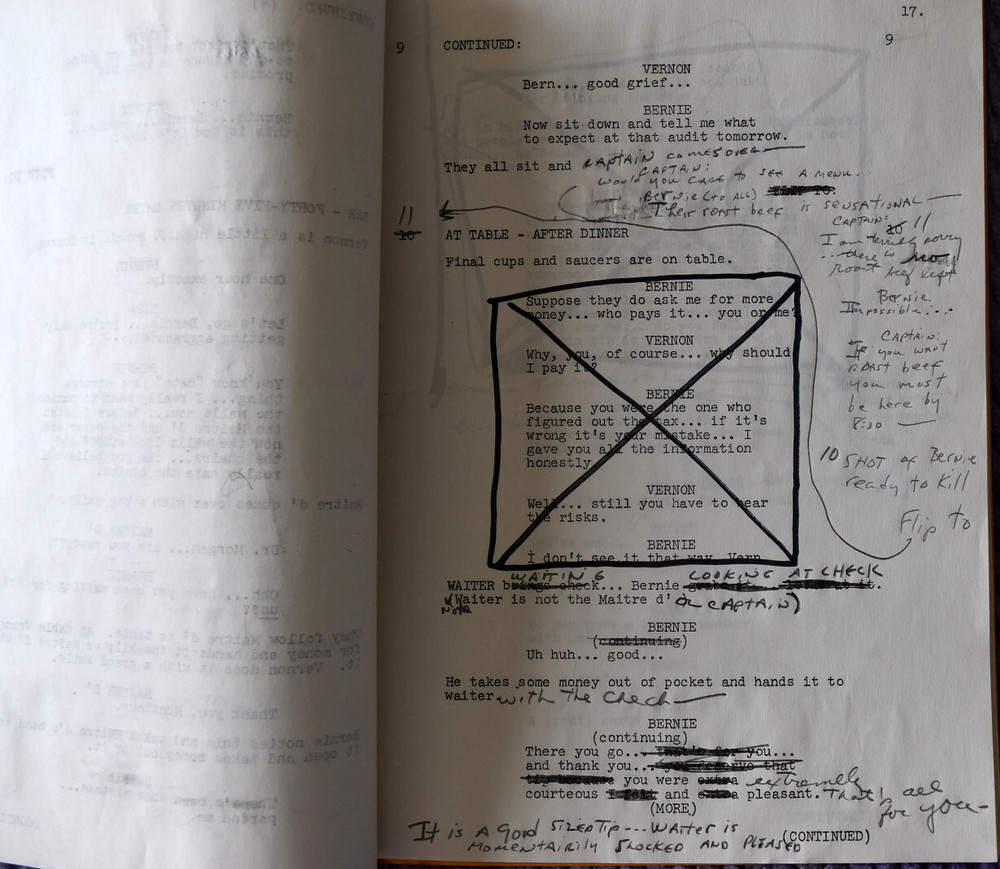 17.
9 CONTINUED: 9
VERNON
Bern... good grief...
BERNIE
Now sit down and tell me what
to expect at that audit tomorrow.
They all sit and CAPTAIN comes over
CAPTAIN:
Would you care to see a menu..
BERNIE (to ALL)
Their roast beef is SENSATIONAL
CAPTAIN:
I am terribly sorry
..there is no
roast beef left
Bernie
Impossible...
CAPTAIN:
If you want
roast beef
you must
be here by
8:30
10 SHOT of Bernie
ready to kill
Flip to
11 10 AT TABLE - AFTER DINNER 10 11
Final cups and saucers are on table.
BERNIE
Suppose they do ask me for more
money... who pays it... you or me?
VERNON
Why, you, of course... why should
I pay it?
BERNIE
Because you were the one who
figured out the tax... if it's
wrong it's your mistake... I
gave you all the information
honestly
VERNON
Well... still you have to bear
the risks.
BERNIE
I don't see it that way, Vern
WAITING LOOKING AT CHECK
WAITER brings check... Bernie grabs it... looks at it.
Note (Waiter is not the Maitre d' or CAPTAIN)
BERNIE
(continuing)
Uh huh... good...
He takes some money out of pocket and hands it to
waiter with the check
BERNIE
(continuing)
There you go... that's for you...
and thank you... you deserve that
tip because you were extra extremely
courteous I felt and extra pleasant. That's all
for you-
(MORE)
(CONTINUED)
It is a good sized tip... Waiter is
momentairily shocked and pleased